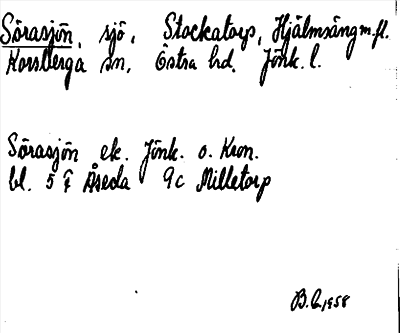 Sörasjön, sjö, Stockatorp, Hjälmsäng m.fl.
Korsberga sn, Östra hd. Jönk. l.
Sörasjön ek. Jönk. o. Kron.
bl. 5 F Åseda 9c Milletorp
B.L. 1958